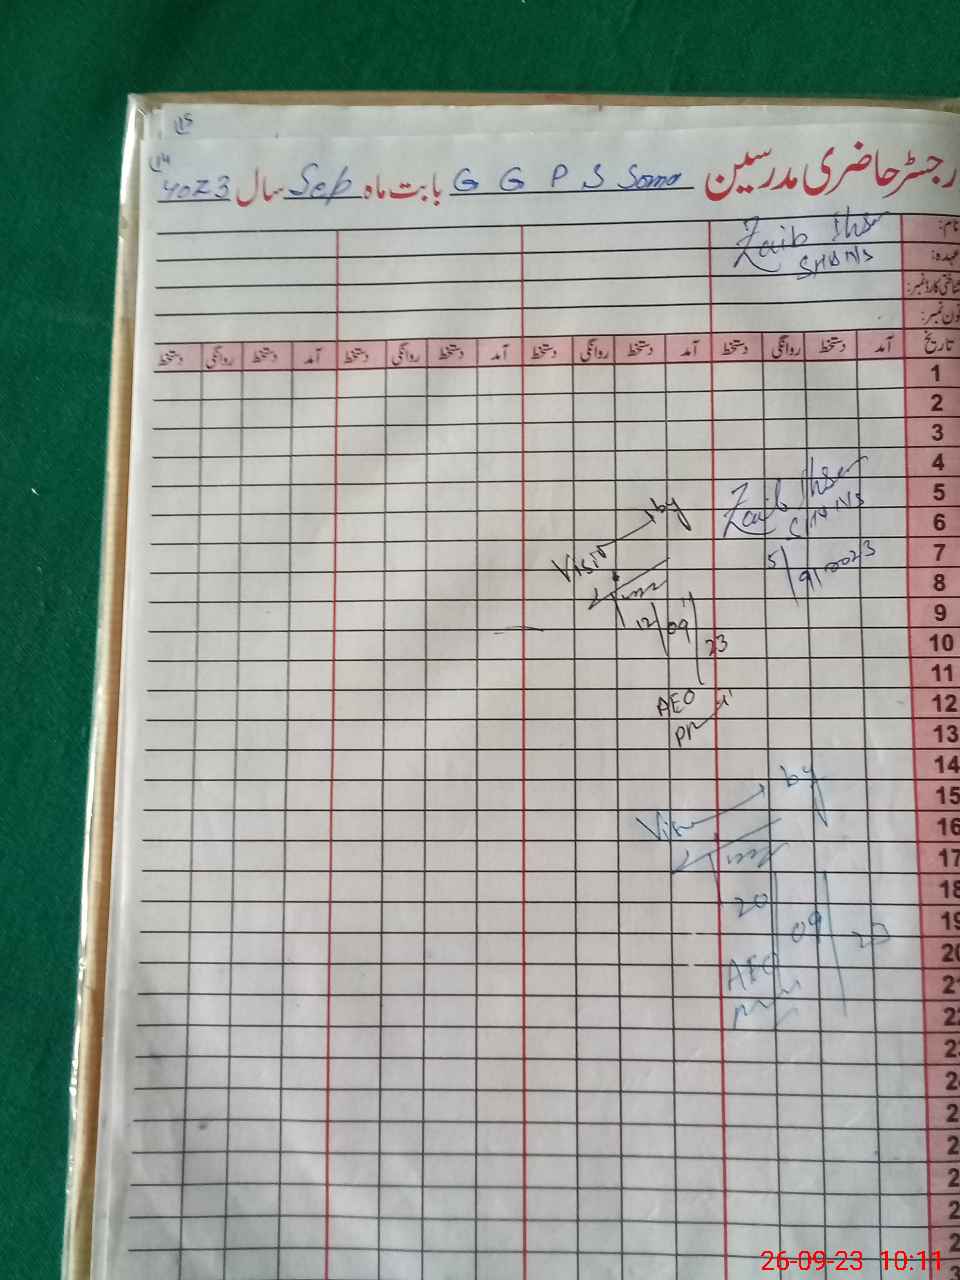 15
14
رجسٹر حاضری مدرسین G G P S Somo بابت ماہ Sep سال 2023
نام: Zaib Ihsan
عہدہ: SHNS
شناختی کارڈ نمبر:
فون نمبر:
تاریخ آمد دستخط روانگی دستخط آمد دستخط روانگی دستخط آمد دستخط روانگی دستخط آمد دستخط روانگی دستخط
1
2
3
4
5
6
7
8
9
10
11
12
13
14
15
16
17
18
19
20
21
22
Zaib Ihsan
SHNS
5/9/2023
Visit by
12/09/23
AEO
by
20/09/23
AEO
26-09-23 10:11